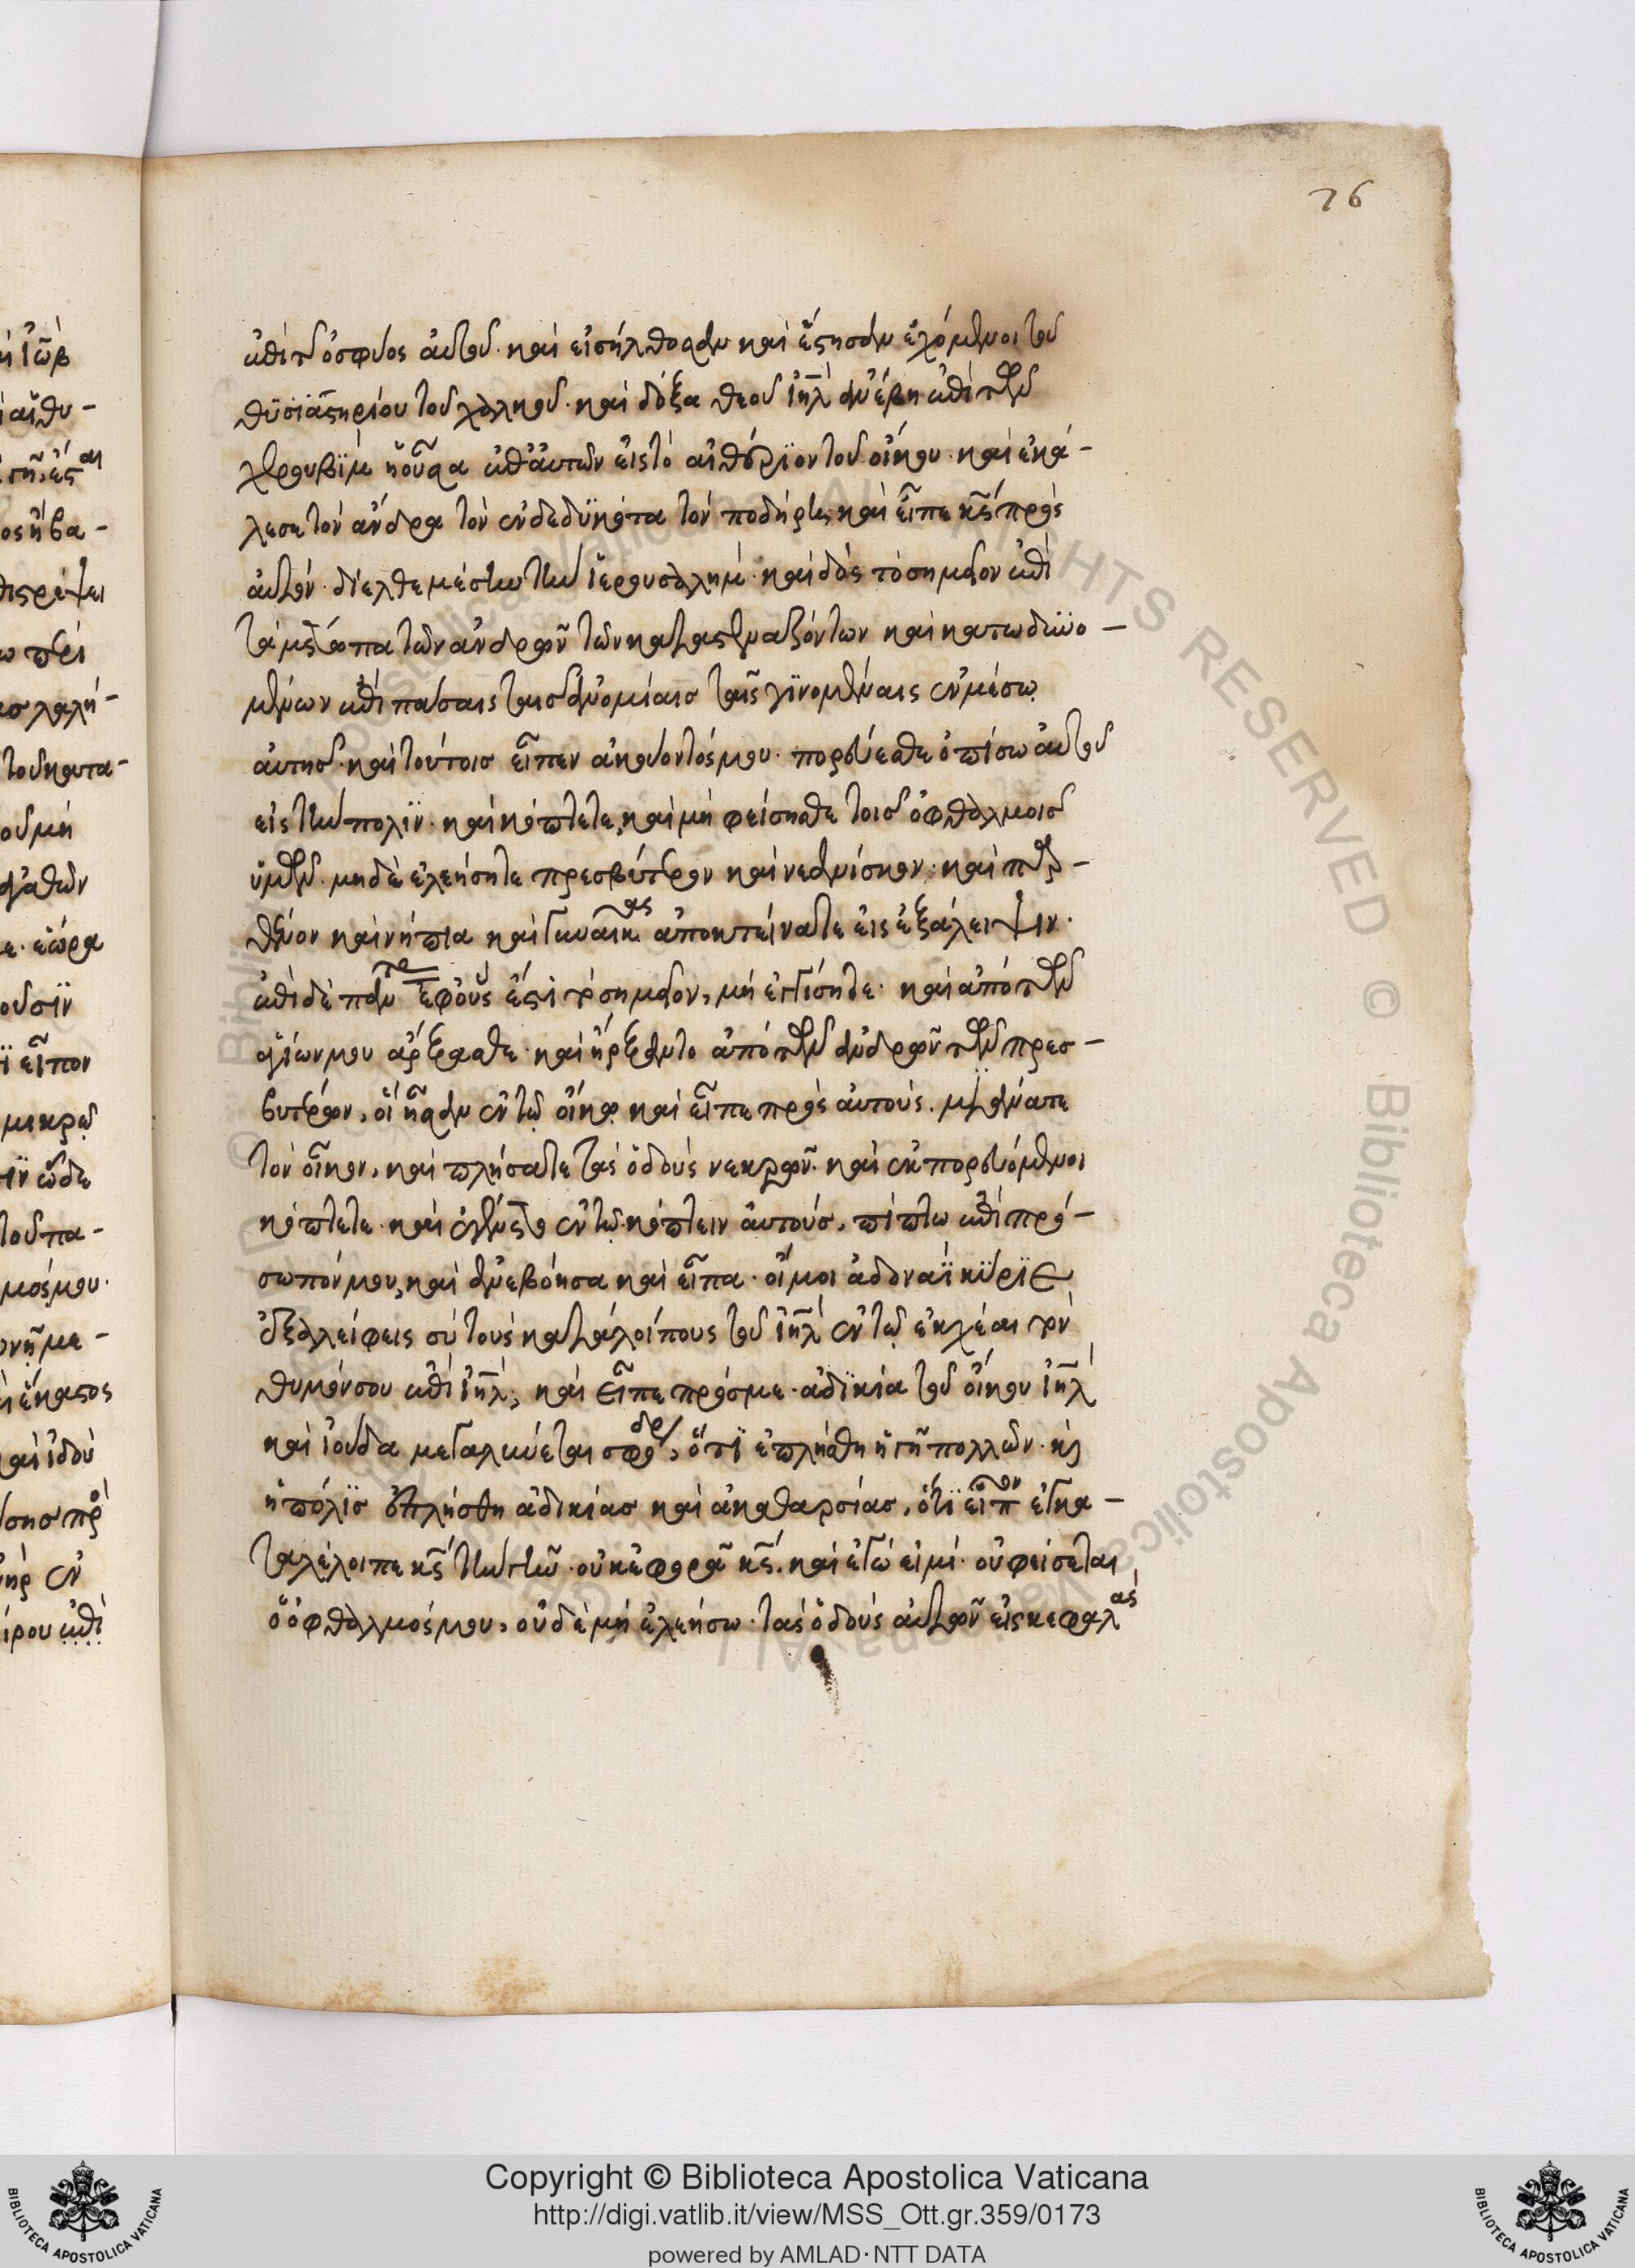 76
ἐπὶ τῆς ὀσφύος αὐτοῦ· καὶ εἰσήλθοσαν καὶ ἔστησαν ἐχόμενοι τοῦ
θϋσϊαστηρίου τοῦ χαλκοῦ· καὶ δόξα θεοῦ ἰηλ ἀνέβη ἐπὶ τῶν
χερουβϊμ ἡ οὖσα ἐπ' αὐτῶν εἰς τὸ αἴθριον τοῦ οἴκου· καὶ ἐκά-
λεσε τὸν ἄνδρα τὸν ἐνδεδϋκότα τὸν ποδήρη, καὶ εἶπε κς πρὸς
αὐτόν· δίελθε μέσην τὴν ἱερουσαλήμ· καὶ δὸς τὸ σημεῖον ἐπὶ
τὰ μέτωπα τῶν ἀνδρῶν τῶν καταστεναζόντων καὶ κατωδϋνο-
μένων ἐπὶ πάσαις ταῖς ἀνομίαις ταῖς γϊνομέναις ἐν μέσῳ
αὐτῆς· καὶ τούτοις εἶπεν ἀκούοντός μου· πορεύεσθε ὀπίσω αὐτοῦ
εἰς τὴν πόλϊν· καὶ κόπτετε, καὶ μὴ φείσησθε τοῖς ὀφθαλμοῖς
ὑμῶν· μηδὲ ἐλεήσητε πρεσβύτερον καὶ νεανίσκον· καὶ παρ-
θένον καὶ νήπια καὶ γυναῖκας ἀποκτείνατε εἰς ἐξάλειψιν·
ἐπὶ δὲ πάντα ἐφ' οὕς ἐστι τὸ σημεῖον, μὴ ἐγγίσητε· καὶ ἀπὸ τῶν
ἁγίων μου ἄρξασθε· καὶ ἤρξαντο ἀπὸ τῶν ἀνδρῶν τῶν πρεσ-
βυτέρων, οἳ ἦσαν ἐν τῷ οἴκῳ καὶ εἶπε πρὸς αὐτούς· μϊάνατε
τὸν οἶκον, καὶ πλήσατε τὰς ὁδοὺς νεκρῶν· καὶ ἐκπορευόμενοι
κόπτετε· καὶ ἐγένετο ἐν τῷ κόπτειν αὐτούς, πίπτω ἐπὶ πρό-
σωπόν μου, καὶ ἀνεβόησα καὶ εἶπα· οἴμοι ἀδοναῒ κύριε
ἐξαλείφεις σὺ τοὺς καταλοίπους τοῦ ἰηλ ἐν τῷ ἐκχέαι τὸν
θυμόν σου ἐπὶ ἰηλ; καὶ εἶπε πρός με· ἀδϊκία τοῦ οἴκου ἰηλ
καὶ ἰούδα μεγαλύνεται σφόδρ, ὅτϊ ἐπλήσθη ἡ γῆ πολλῶν· κὶ
ἡ πόλϊς ἐπλήσθη ἀδικίας καὶ ἀκαθαρσίας, ὅτϊ εἶπον ἐγκα-
ταλέλοιπε κς τὴν γῆν· οὐκ ἐφορᾶ κς. καὶ ἐγώ εἰμι· οὐ φείσεται
ὁ ὀφθαλμός μου, οὐδὲ μὴ ἐλεήσω· τὰς ὁδοὺς αὐτῶν εἰς κεφαλὰς
Copyright © Biblioteca Apostolica Vaticana
http://digi.vatlib.it/view/MSS_Ott.gr.359/0173
powered by AMLAD·NTT DATA